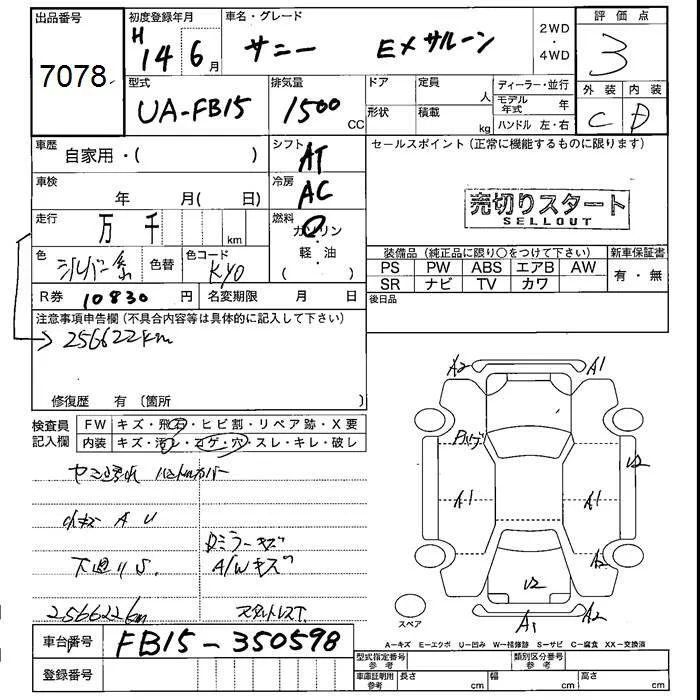 出品番号
7078
初度登録年月
H 14 6 月
車名・グレード
サニー EXサルーン
2WD
・
4WD
評価点
3
型式
UA-FB15
排気量
1500 CC
ドア
形状
定員 人
積載 kg
ディーラー・並行
モデル年式 年
ハンドル 左・右
外装 内装
C D
車歴
自家用・( )
シフト
AT
セールスポイント(正常に機能するものに限ります)
車検
年 月( 日)
冷房
AC
売切りスタート
SELLOUT
走行
万 千 km
燃料
ガソリン
・
軽・油
( )
色
シルバー系
色替
色コード
KY0
装備品(純正品に限り○をつけて下さい)
新車保証書
PS PW ABS エアB AW
SR ナビ TV カワ
有・無
R券 10830 円
名変期限 月 日
後日品
注意事項申告欄(不具合内容等は具体的に記入して下さい)
256622km
修復歴 有(箇所 )
検査員記入欄
FW キズ・飛石・ヒビ割・リペア跡・X要
内装 キズ・汚レ・コゲ・穴・スレ・キレ・破レ
ハンドルカバー
小キズ A U
ミラーキズ
下廻りS.
A/Wキズ
256622km
スタットレスT.
A2 A1
U2
A1 A1
A2
U2
A1 A2
スペア
A-キズ E-エクボ U-凹み W-補修跡 S-サビ C-腐食 XX-交換済
車台番号
FB15-350598
登録番号
型式指定番号
参考
類別区分番号
参考
車庫証明用
参考
長さ cm
幅 cm
高さ cm